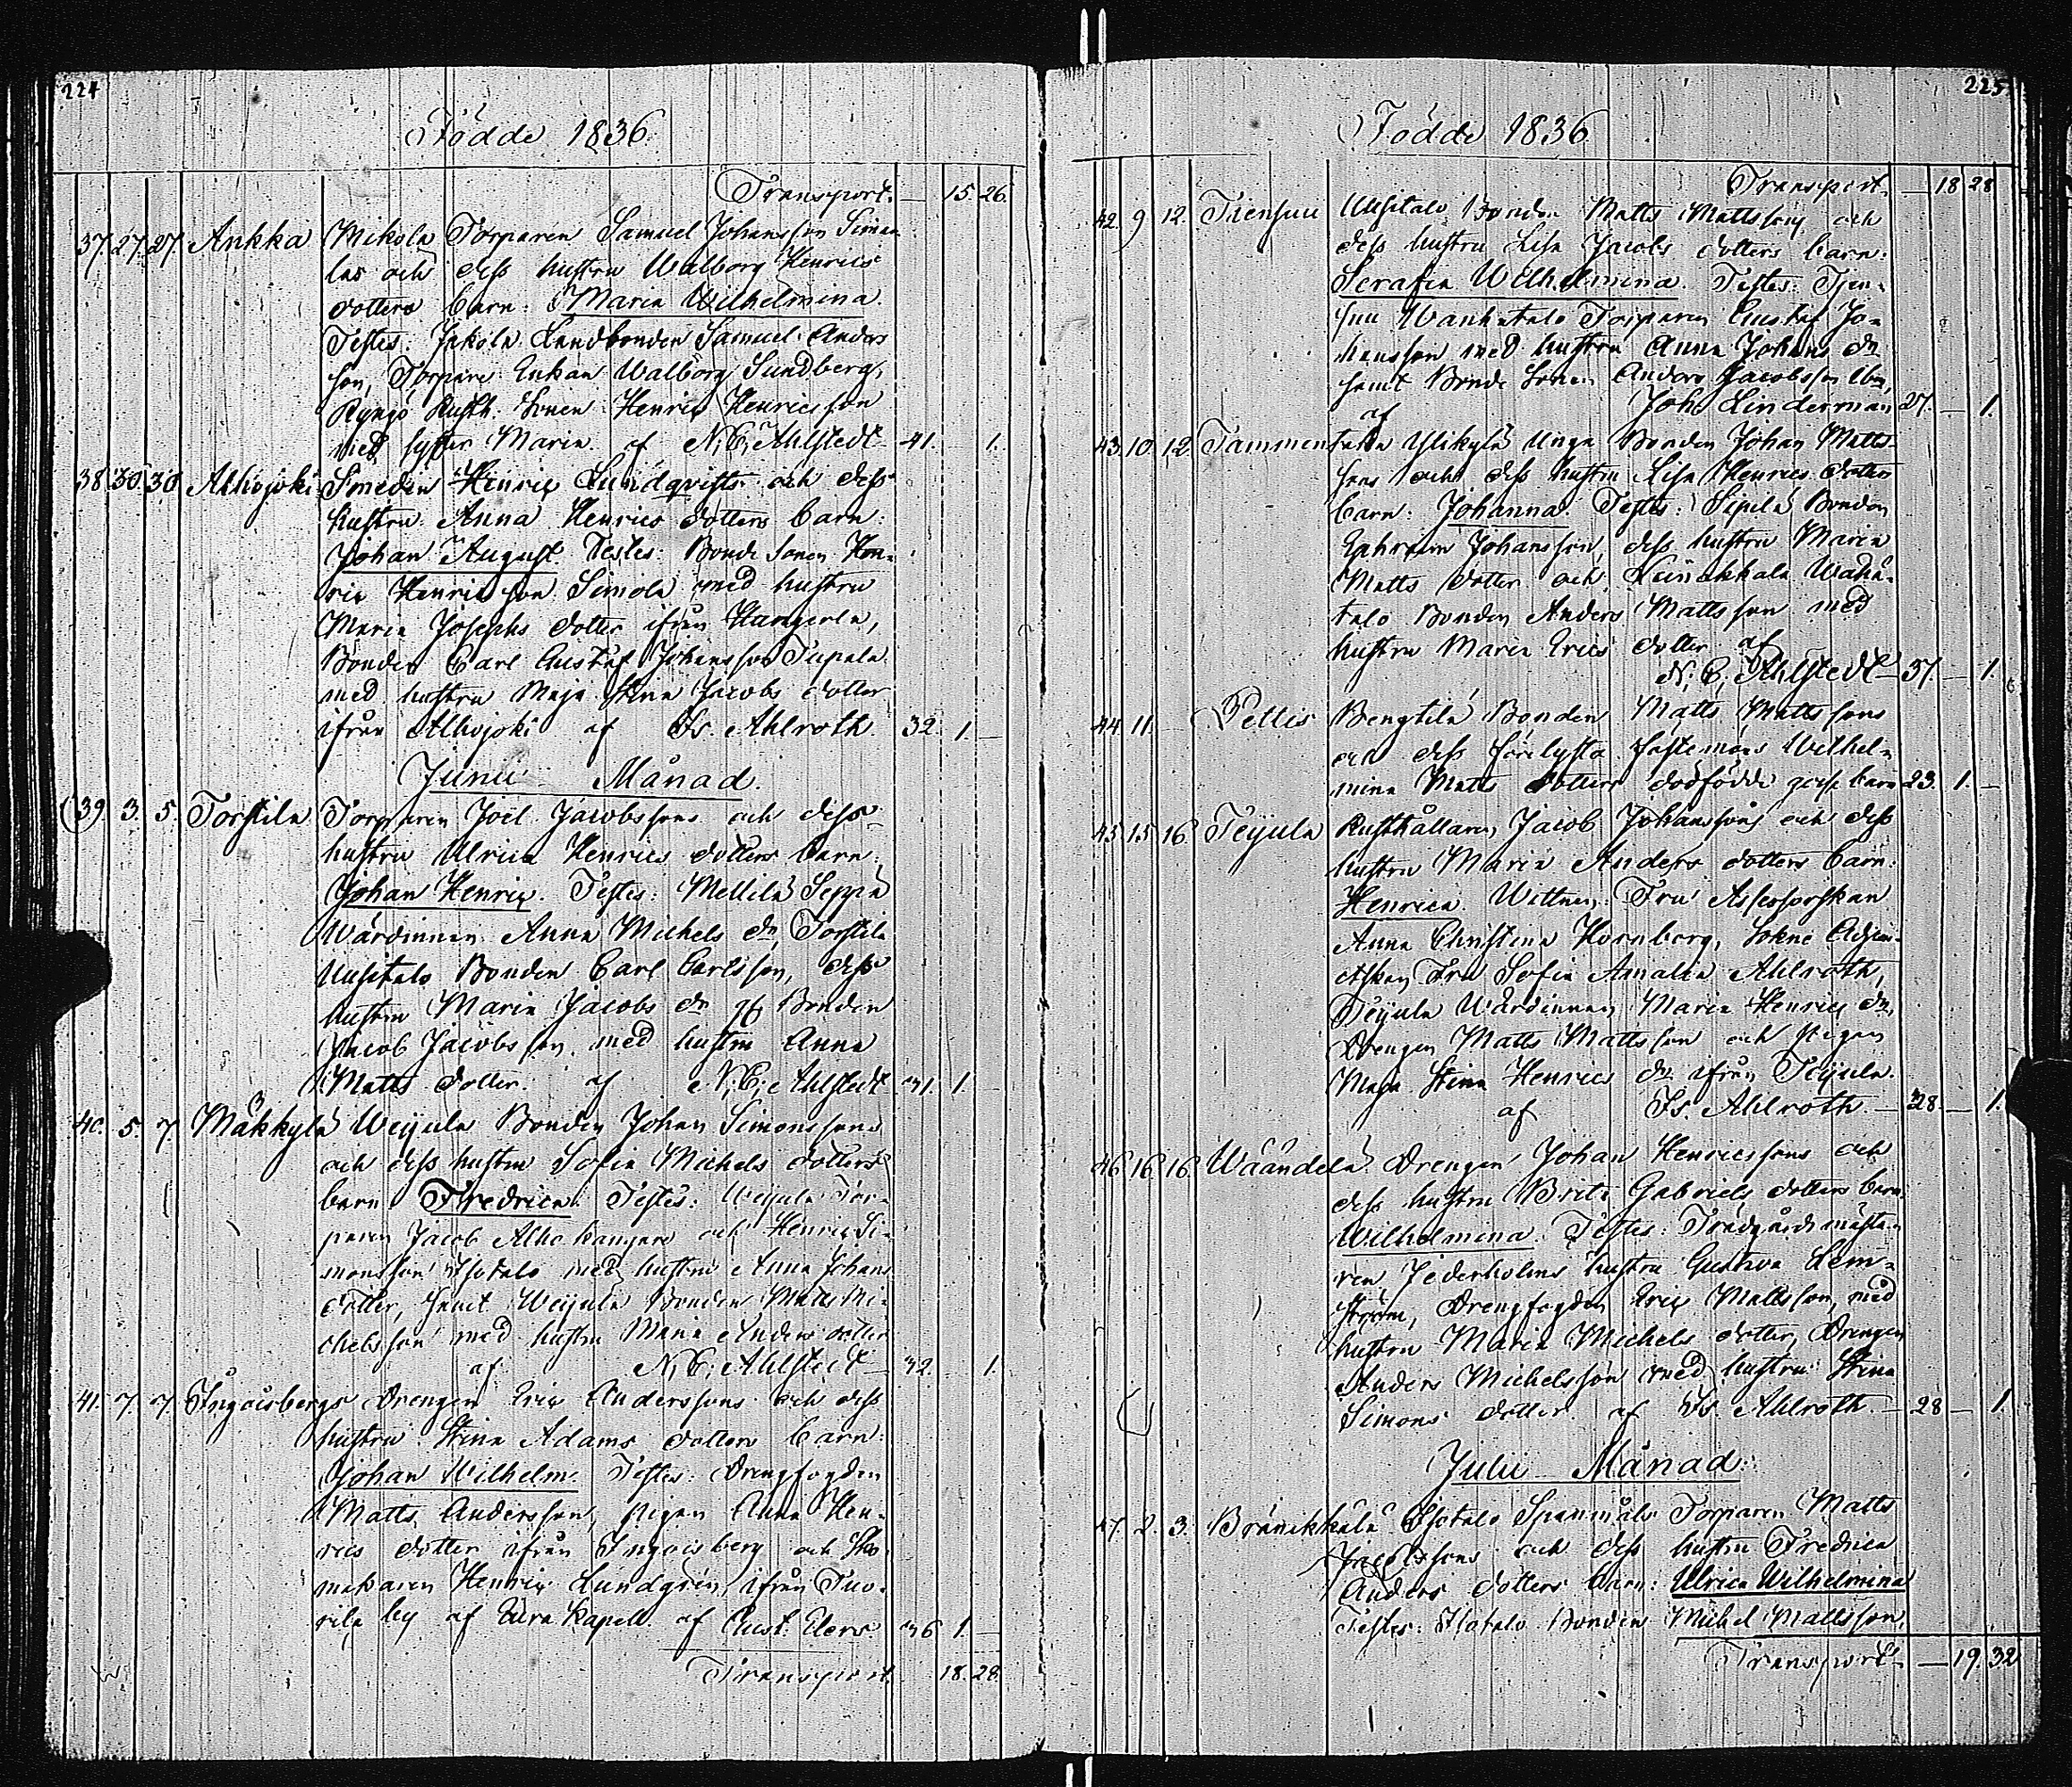 224
Födde 1836.
Transport. — 15. 26.
37. 27. 27. Ankka Mikola Torparen Samuel Johansson Simo
las och dess hustru Walborg Henrics
dotters barn: Maria Wilhelmina.
Testes: Jakola Landbonden Samuel Anders
son, Torpare Enkan Walborg Sundberg,
Rusth. Sonen Henric Henricsson
med syster Maria. af N. C. Ahlstedt 41. 1.
38. 30. 30. Alhojoki Smeden Henric Lundqvists och dess
hustru Anna Henrics dotters barn:
Johan August. Testes: Bonde Sonen Hen-
ric Henricsson Simola med hustru
Maria Josephs dotter ifrån Kangerla,
Bonden Carl Gustaf Johansson Tupala
med hustru Maja Stina Jacobs dotter
ifrån Alhojoki af Is. Ahlroth. 32. 1. —
Junii Månad.
39. 3. 5. Torstila Torparen Joel Jacobssons och dess
hustru Ulrica Henrics dotters barn:
Johan Henric. Testes: Mellilä Seppä
Wärdinnan Anna Michels dr, Torstila
Uusitalo Bonden Carl Carlsson, dess
hustru Maria Jacobs dr Bonden
Jacob Jacobsson med hustru Anna
Matts dotter. af N. C. Ahlstedt 41. 1.
40. 5. 7. Mäkkylä Weijula Bonden Johan Simonssons
och dess hustru Sofia Michels dotters
barn Fredrica. Testes: Weijula Tor-
paren Jacob Alho kangare och Henric Si-
monsson Isotalo med hustru Anna Johans
dotter, samt Weijula Bonden Matts Mi-
chelsson med hustru Maria Anders dotter
af N. C. Ahlstedt 32. 1.
41. 7. 7. Ingoisbergs Drengen Eric Anderssons och dess
hustru Stina Adams dotters barn:
Johan Wilhelm. Testes: Drengfogden
Matts Andersson, pigan Anna Hen-
rics dotter ifrån Ingoisberg och Sko-
makaren Henric Lundgrén, ifrån Tuo-
rila by af Eura Kapell. af Gust. Elers 36 1. —
Transport. 18. 28.
225
Födde 1836
Transport. — 18 28
42. 9 12. Tiensuu Uusitalo Bonden Matts Mattssons och
dess hustru Lisa Jacobs dotters barn:
Serafia Wilhelmina. Testes: Tien-
suu Wanhatalo Torparen Gustaf Jo-
hansson med hustru Anna Johans dr
samt Bonde Sonen Anders Jacobsson
af Joh. Linderman 27. — 1.
43. 10. 12. Tammentaka Ylikylä Unga Bonden Johan Matts-
sons och dess hustru Lisa Henrics dotters
barn: Johanna. Testes: Sipilä Bonden
Ephraim Johansson, dess hustru Maria
Matts dotter och Leinakkala Waha-
talo Bonden Anders Mattsson med
hustru Maria Erics dotter af
N. C. Ahlstedt 37. — 1.
44. 11. — Pellis Bengtilä Bonden Matts Mattssons
och dess förelysta fästemöns Wilhel-
mina Matts dotters dödfödde gosse barn 23. 1. —
45. 15. 16. Teijula Rusthållaren Jacob Johanssons och dess
hustru Maria Anders dotters barn:
Henrica. Wittnen: Fru Assessorskan
Anna Christina Hornborg, Sokne Adjun-
ctskan Fru Sofia Amalia Ahlroth,
Teijula Wärdinnan Maria Henrics dr,
Drengen Matts Mattsson och Pigan
Maja Stina Henrics dr ifrån Teijula.
af Is. Ahlroth. — 28. — 1.
46 16. 16. Wäändelä Drengen Johan Henricssons och
dess hustru Brita Gabriels dotters barn
Wilhelmina. Testes: Trädgårdsmästa-
ren Jederholms hustru Gustava Lem-
ström, Drengfogden Eric Mattsson, med
hustru Maria Michels dotter, Drengen
Anders Michelsson med hustru Stina
Simons dotter. af Is. Ahlroth. — 28 — 1
Julii Månad.
47. 2. 3. Bränikkälä Isotalo Spanmåls Torparen Matts
Jacobssons och dess hustru Fredrica
Anders dotters barn: Ulrica Wilhelmina
Testes: Isotalo Bonden Michel Mattsson,
Transport — 19. 32